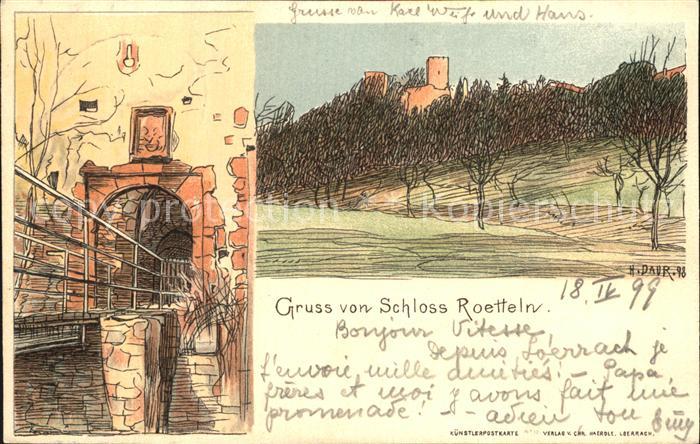 Grüsse von Karl Weiß und Hans.
H. DAUR. 98
18. IV 99
Gruss von Schloss Roetteln.
Bonjour Vitesse
Depuis Loerrach je
t'envoie mille amitiés! – Papa
frères et moi y avons fait une
promenade! – adieu ton
KÜNSTLERPOSTKARTE VERLAG V. CHR. HAERDLE, LOERRACH.
copy protection Kopierschutz